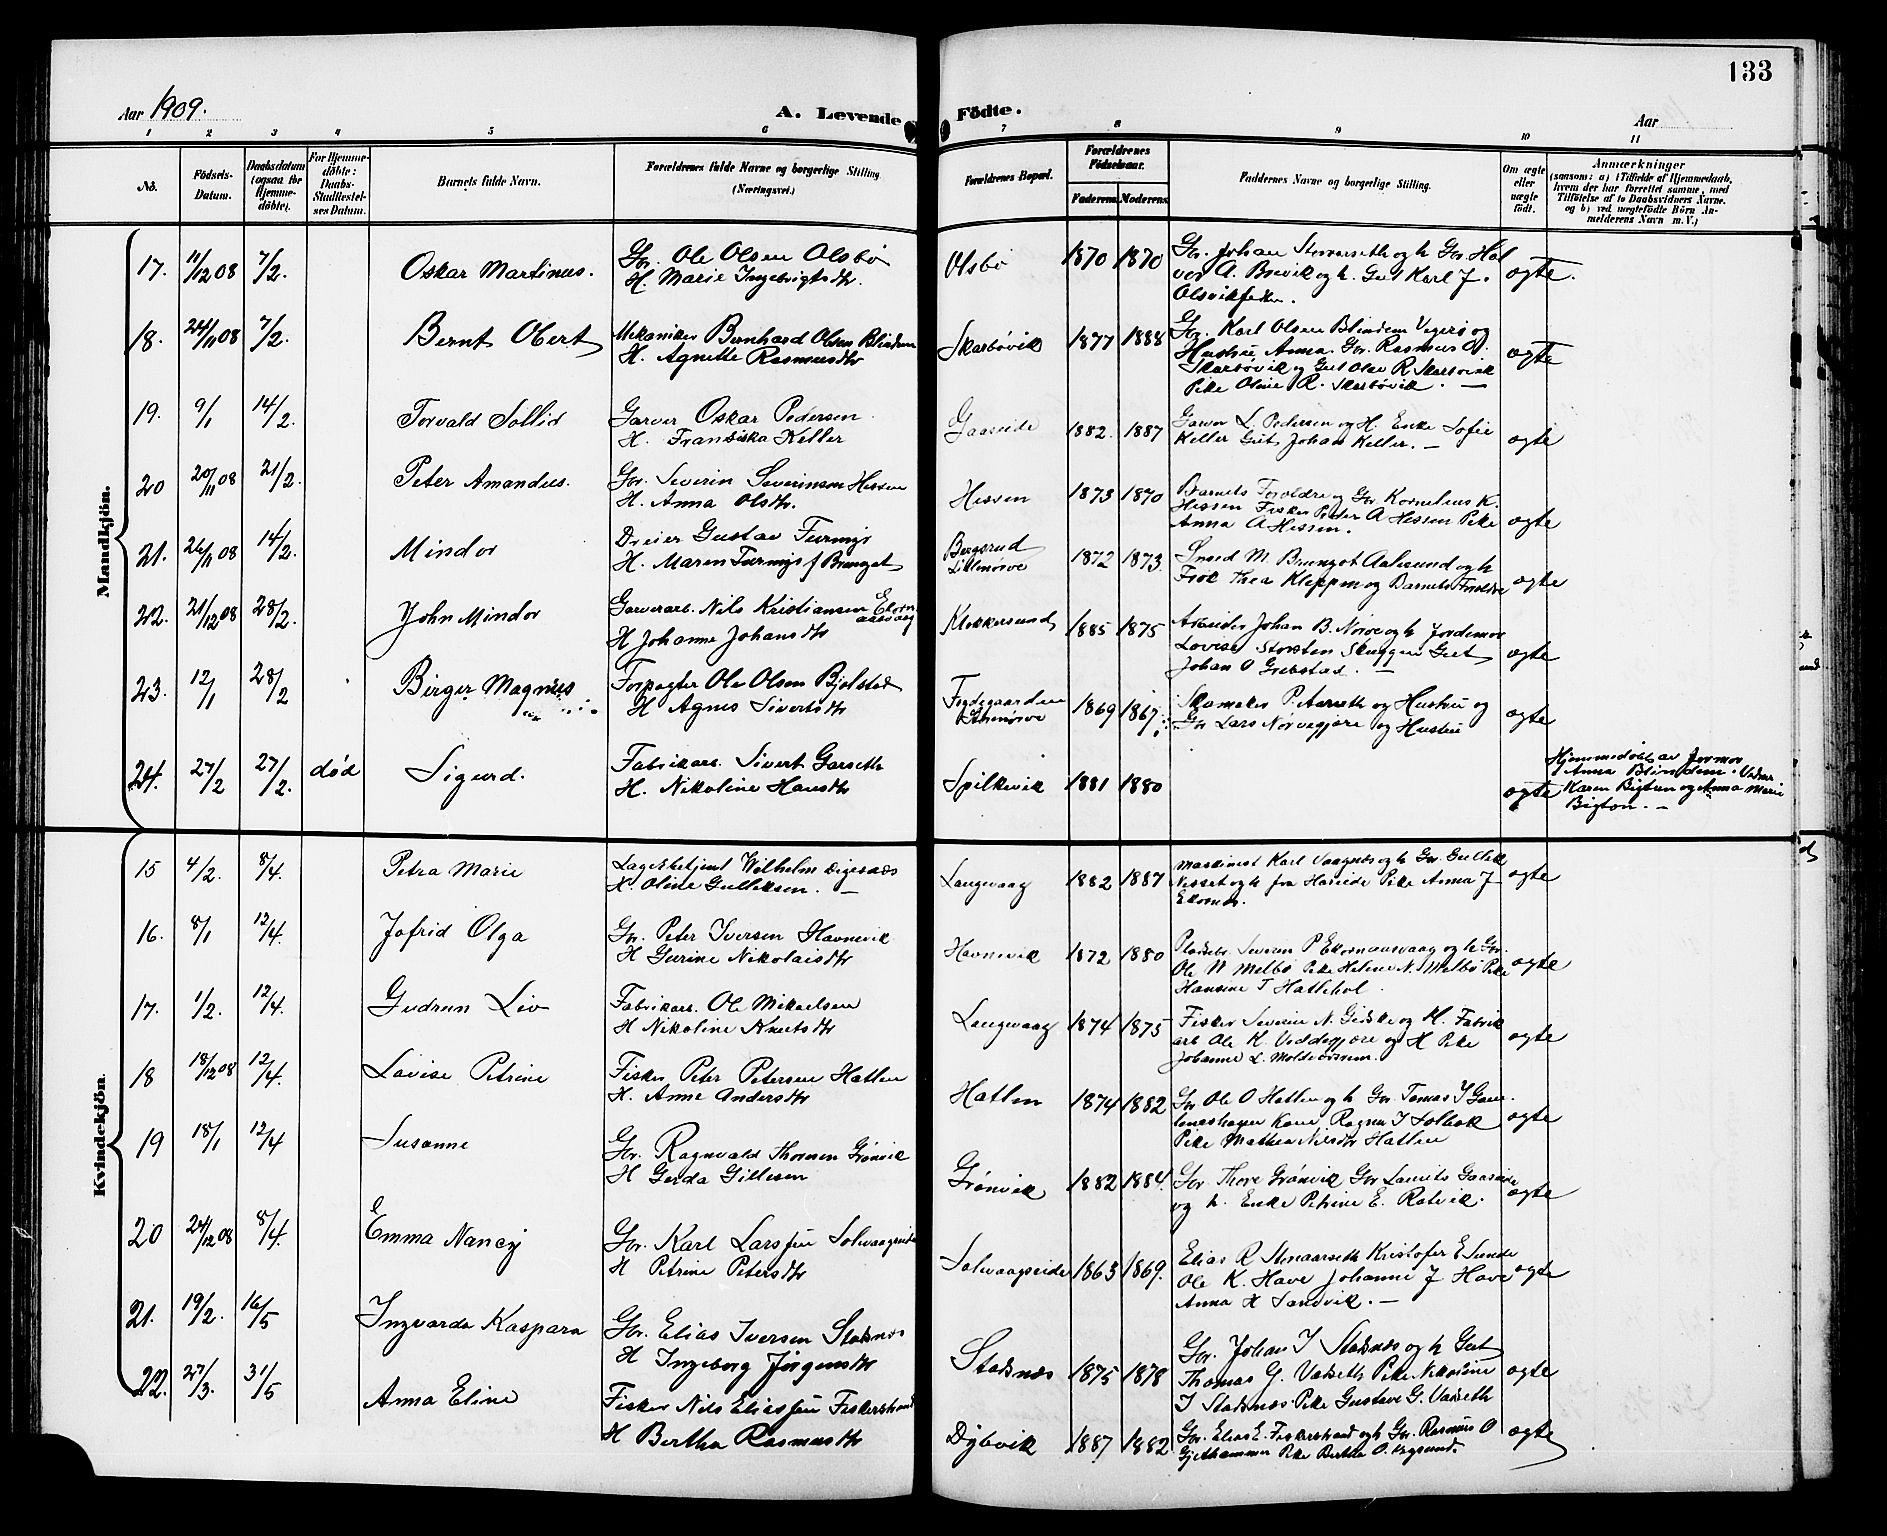 133
Aar 1909.
A. Levende Födte.
Aar
1 2 3 4 5 6 7 8 9 10 11
No.
Födsels-Datum.
Daabsdatum (ogsaa for Hjemme-döbte).
For Hjemme-döbte: Daabs-Stadfæstelses Datum.
Barnets fulde Navn.
Forældrenes fulde Navne og borgerlige Stilling
(Næringsvei.)
Forældrenes Bopæl.
Forældrenes Födselsaar.
Faderens Moderens
Faddernes Navne og borgerlige Stilling.
Om ægte eller uægte födt.
Anmærkninger
(saasom: a) i Tilfælde af Hjemmedaab,
hvem der har forrettet samme, med
Tilföielse af to Daabsvidners Navne,
og b) ved uægtefödte Börn An-
melderens Navn m. V.)
Mandkjön.
17. 11/12 08 7/2. Oskar Martinus. Gr. Ole Olsen Olsbø
H. Marie Ingebrigtsdtr.
Olsbø 1870 1870 Gr. Johan Storeseth og h Gr. Hal
vor A. Brevik og h. Gut Karl J.
Olsvik
ægte.
18. 24/11 08 7/2. Bernt Obert Mekaniker Bernhard Olsen Blindem
H. Agnette Rasmusdtr
Skarbøvik 1877 1888 Gr. Karl Olsen Blindem Vegerø og
Hustru Anna. Gr. Rasmus O.
Skarbøvik og Gut Olav R Skarbøvik
Pike Oline R. Skarbøvik. —
ægte
19. 9/1 14/2. Torvald Sollid Garver Oskar Pedersen
H. Fransiska Keller
Gaaseide 1882. 1887 Garver L. Pedersen og H. Enke Sofie
Keller Gut Johan Keller. —
ægte
20 20/11 08 21/2. Peter Amandus. Gr. Severin Severinsen Hessen
H. Anna Olsdtr.
Hessen 1873 1870 Barnets Foreldre og Gr Kornelius K.
Hessen Fisker Peder A Hessen Pike
Anna A Hessen.
ægte
21. 26/11 08 14/2. Mindor Dreier Gustav Furmyr
H. Maren Furmyr f Brunget
Bergsrud 1872 1873. Smed M. Brungot Aalesund og h
Frøk Thea Kleppen og Barnets Foreldre
ægte
22. 21/12 08 28/2. John Mindor Garverarb. Nils Kristiansen Ekorn-
aasvaag
H Johanne Johansdtr
Klokkersund 1885 1875 Arbeider Johan B. Nørve og h Jordemor
Lovise Storsten Skuggen Gut
Johan O Grebstad.
ægte
23. 12/1 28/2 Birger Magnus Forpagter Ole Olsen Bjolstad
H Agnes Sivertsdtr
Fogdegaarden 1869 1867 Skomaker P. Aarseth og Hustru og
Gr Lars Nørvegjøre og Hustru
ægte
24. 27/2 27/2. død Sigurd. Fabrikarb. Sivert Garseth
H. Nikoline Hansdtr
Spilkevik 1881 1880
ægte
Hjemmedøbt av Jormor
Anna Blindem. Vidner
Karen Bigton og Anna Marie
Bigton. —
Kvindekjön.
15 4/2. 8/4. Petra Marie Lagerbetjent Wilhelm Digernes
H. Oline Gulliksen. —
Langevaag 1882 1887 Maskinist Karl Vaagnes og h Gr. Gullik
Nesset og h fra Hareide Pike Anna J
Ekornes.
ægte
16. 8/1 12/4. Jofrid Olga Gr. Peter Iversen Havnevik
H Gurine Nikolaisdtr
Havnevik 1872 1880 Pladsbr. Severin P Ekorneasvaag og h Gr.
Ole N Melbø Pike Helene N. Melbø Pike
Hansine T Hatlehol.
ægte
17. 1/2. 12/4. Gudrun Liv Fabrikarb. Ole Mikaelsen
H Nikoline Knutsdtr
Langevaag 1874 1875 Fisker Severin N. Giske og H. Fabrik
arb Ole K. Veddegjære og H Pike
Johanne L. Molde
ægte
18 18/12 08 12/4. Lovise Petrine Fisker Peter Petersen Hatlen
H. Anne Andersdtr
Hatlen 1874 1882 Gr Ole O Hatlen og h Gr. Tomas I Gam-
lemshagen Kone Ragna I Solbak
Pike Mathea Nilsdtr Hatlen
ægte
19 18/1 12/4 Susanne Gr. Ragnvald Thoresen Grønvik
H Gerda Gillesen
Grønvik 1882 1884. Gr. Thore Grønvik Gr Laurits Gaaseide
og h. Enke Petrine E. Ratvik.
ægte
20 24/12 08 8/4. Emma Nancy Gr. Karl Larssen Solevaagseide
H Petrine Petersdtr
Solevaagseide 1863 1869. Elias R Stenaarseth Kristofer E Sunde
Ole K. Have Johanne J Have
Anna H Sandvik. —
ægte
21. 19/2. 16/5 Ingvarda Kaspara Gr. Elias Iversen Stadsnes
H Ingeborg Jørgensdtr
Stadsnes 1875 1878 Gr. Johan I Stadsnes og h Gut
Thomas G. Vadseth Pike Nikoline
I Stadsnes. Pike Gustava G. Vadseth
ægte
22. 27/3. 31/5 Anna Eline Fisker Nils Eliassen Fiskerstrand
H Bertha Rasmusdtr
Dybvik 1887 1882 Gr. Elias E. Fiskerstrand og h Gr. Rasmus O
Gjethammer Pike Bertha O. Vegsund.
ægte